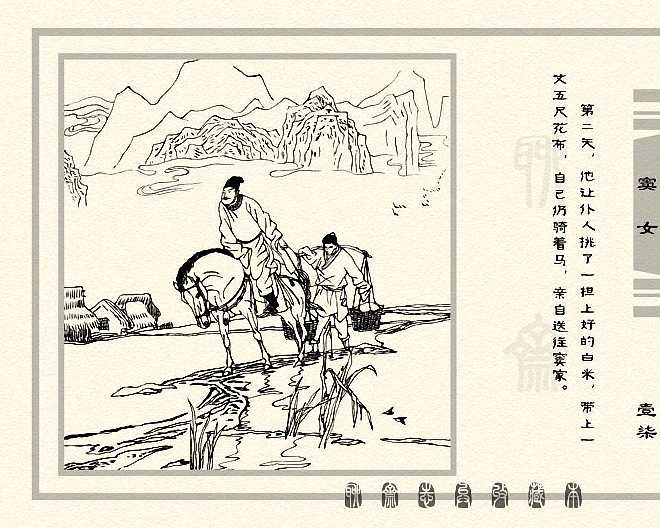 第二天，他让仆人挑了一担上好的白米，带上一
丈五尺花布，自己仍骑着马，亲自送往窦家。
窦女
壹柒
聊斋志异收藏本